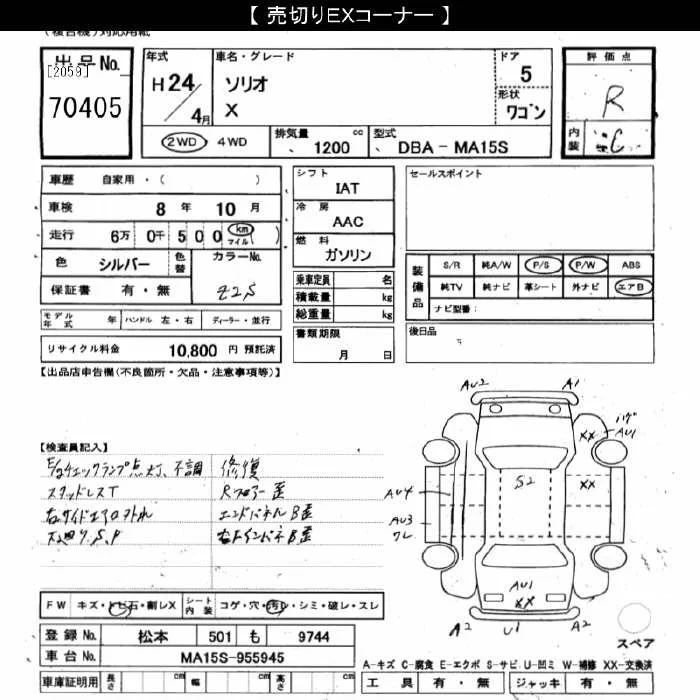 【 売切りEXコーナー 】
出品No.
[2059]
70405
年式
H24/4月
車名・グレード
ソリオ
X
ドア
5
形状
ワゴン
評価点
R
内装
C
2WD 4WD
排気量 1200 cc
型式 DBA-MA15S
車歴 自家用・( )
車検 8年 10月
走行 6万 0千 500 km マイル ( )
色 シルバー 色替 カラーNo.
保証書 有・無 Z2S
シフト
IAT
冷房
AAC
燃料
ガソリン
乗車定員 名
積載量 kg
総重量 kg
書類期限
月 日
セールスポイント
装備品
S/R 純A/W P/S P/W ABS
純TV 純ナビ 革シート 外ナビ エアB
ナビ型番:
後日品
モデル年式 年 ハンドル 左・右 ディーラー・並行
リサイクル料金 10,800 円 預託済
【出品店申告欄(不良箇所・欠品・注意事項等)】
【検査員記入】
E/gチェックランプ点灯、不調
スタッドレスT
右サイドエアロヤトれ
修復
Rフロアー歪
エンドパネルB歪
右Rインパネ B歪
AU2 A1
AU1
XX
S2
XX
AU4
AU3
AU1
XX
A2 U1 A2
スペア
FW キズ・トビ石・割レX シート内装 コゲ・穴・汚レ・シミ・破レ・スレ
登録No. 松本 501 も 9744
車台No. MA15S-955945
車庫証明用 長さ cm 幅 cm 高さ cm
A-キズ C-腐食 E-エクボ S-サビ U-凹ミ W-補修 XX-交換済
工具 有・無 ジャッキ 有・無